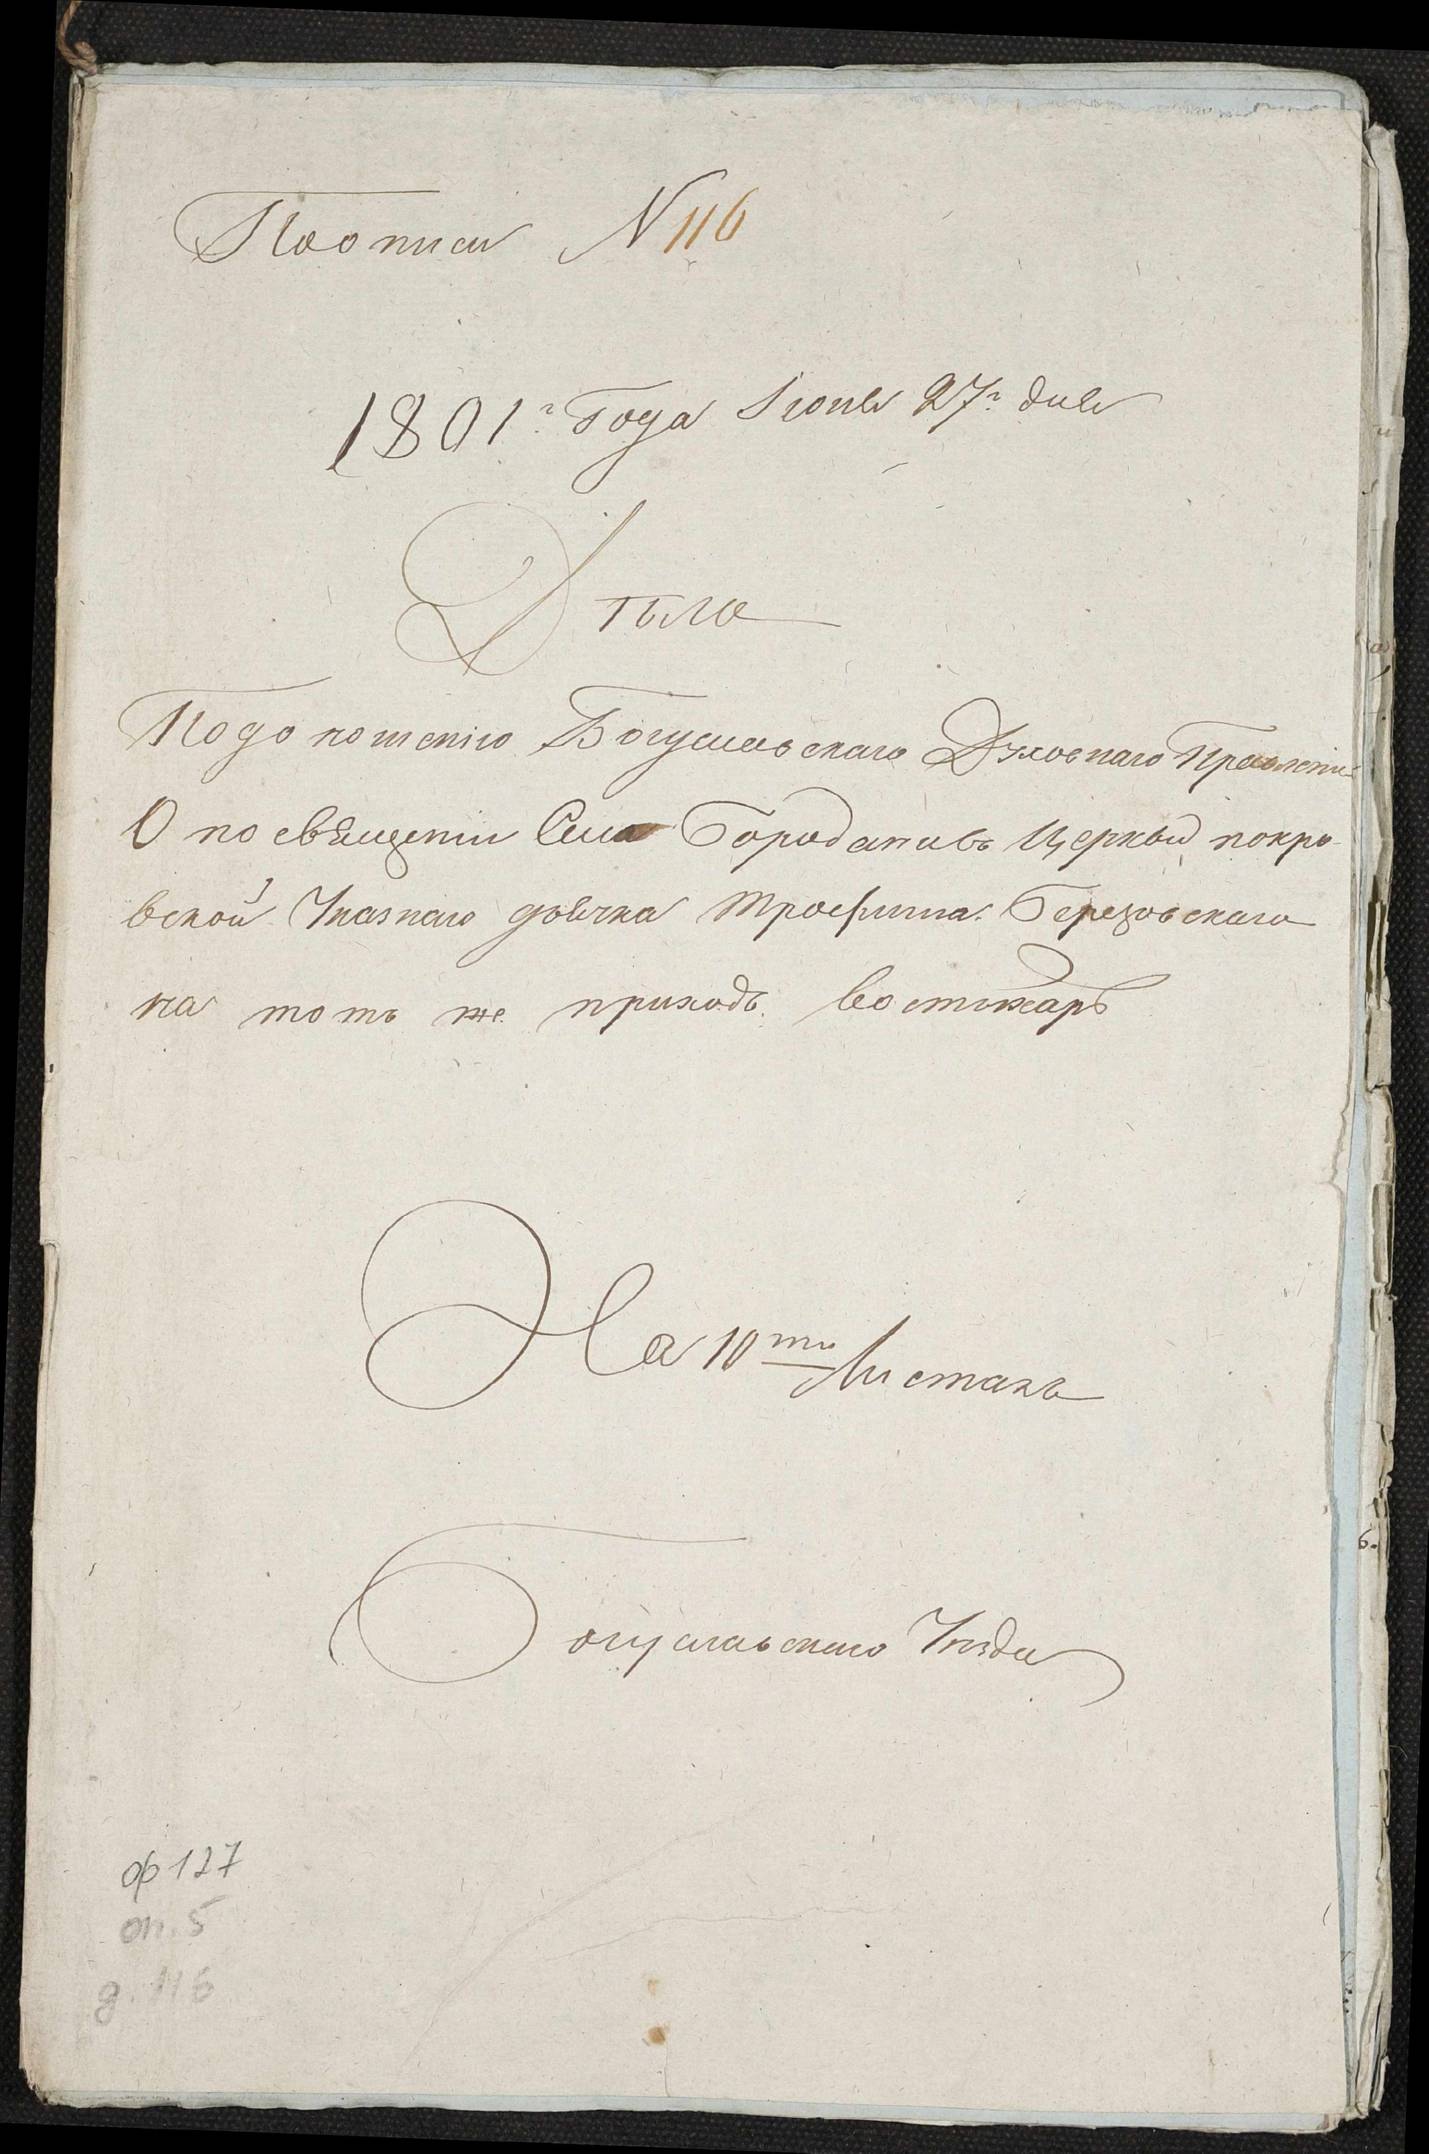 Поописи N 116
1801г. Года Іюня 27г. дня
Дѣло
Подоношенію Богуславскаго Духовнаго Правлені
О посвященіи Села Бородани Церкви покро
вской Указнаго дьячка Трофима Березовскаго
на тотъ же приходъ востихарь
На 10ти Листахъ
Богуславскаго Уезда
ф 127
оп. 5
д. 116